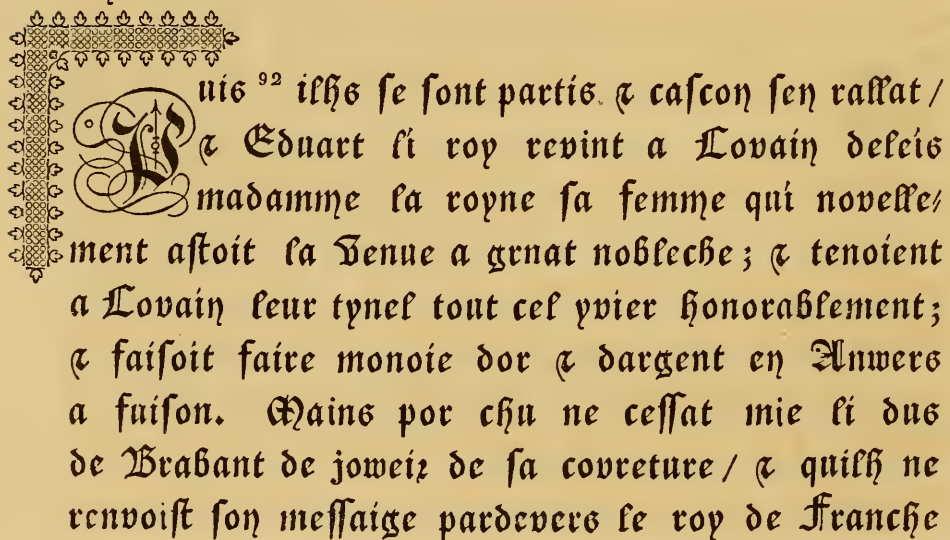 Puis ⁹² ilhs se sont partis. ⁊ cascon sen rallat /
⁊ Eduart li roy revint a Lovain deleis
madamme la royne sa femme qui novelle⸗
ment astoit la venue a grnat nobleche; ⁊ tenoient
a Lovain leur tynel tout cel yvier honorablement;
⁊ faisoit faire monoie dor ⁊ dargent en Anwers
a fuison. Mains por chu ne cessat mie li dus
de Brabant de joweir de sa covreture / ⁊ quilh ne
renvoist son messaige pardevers le roy de Franche